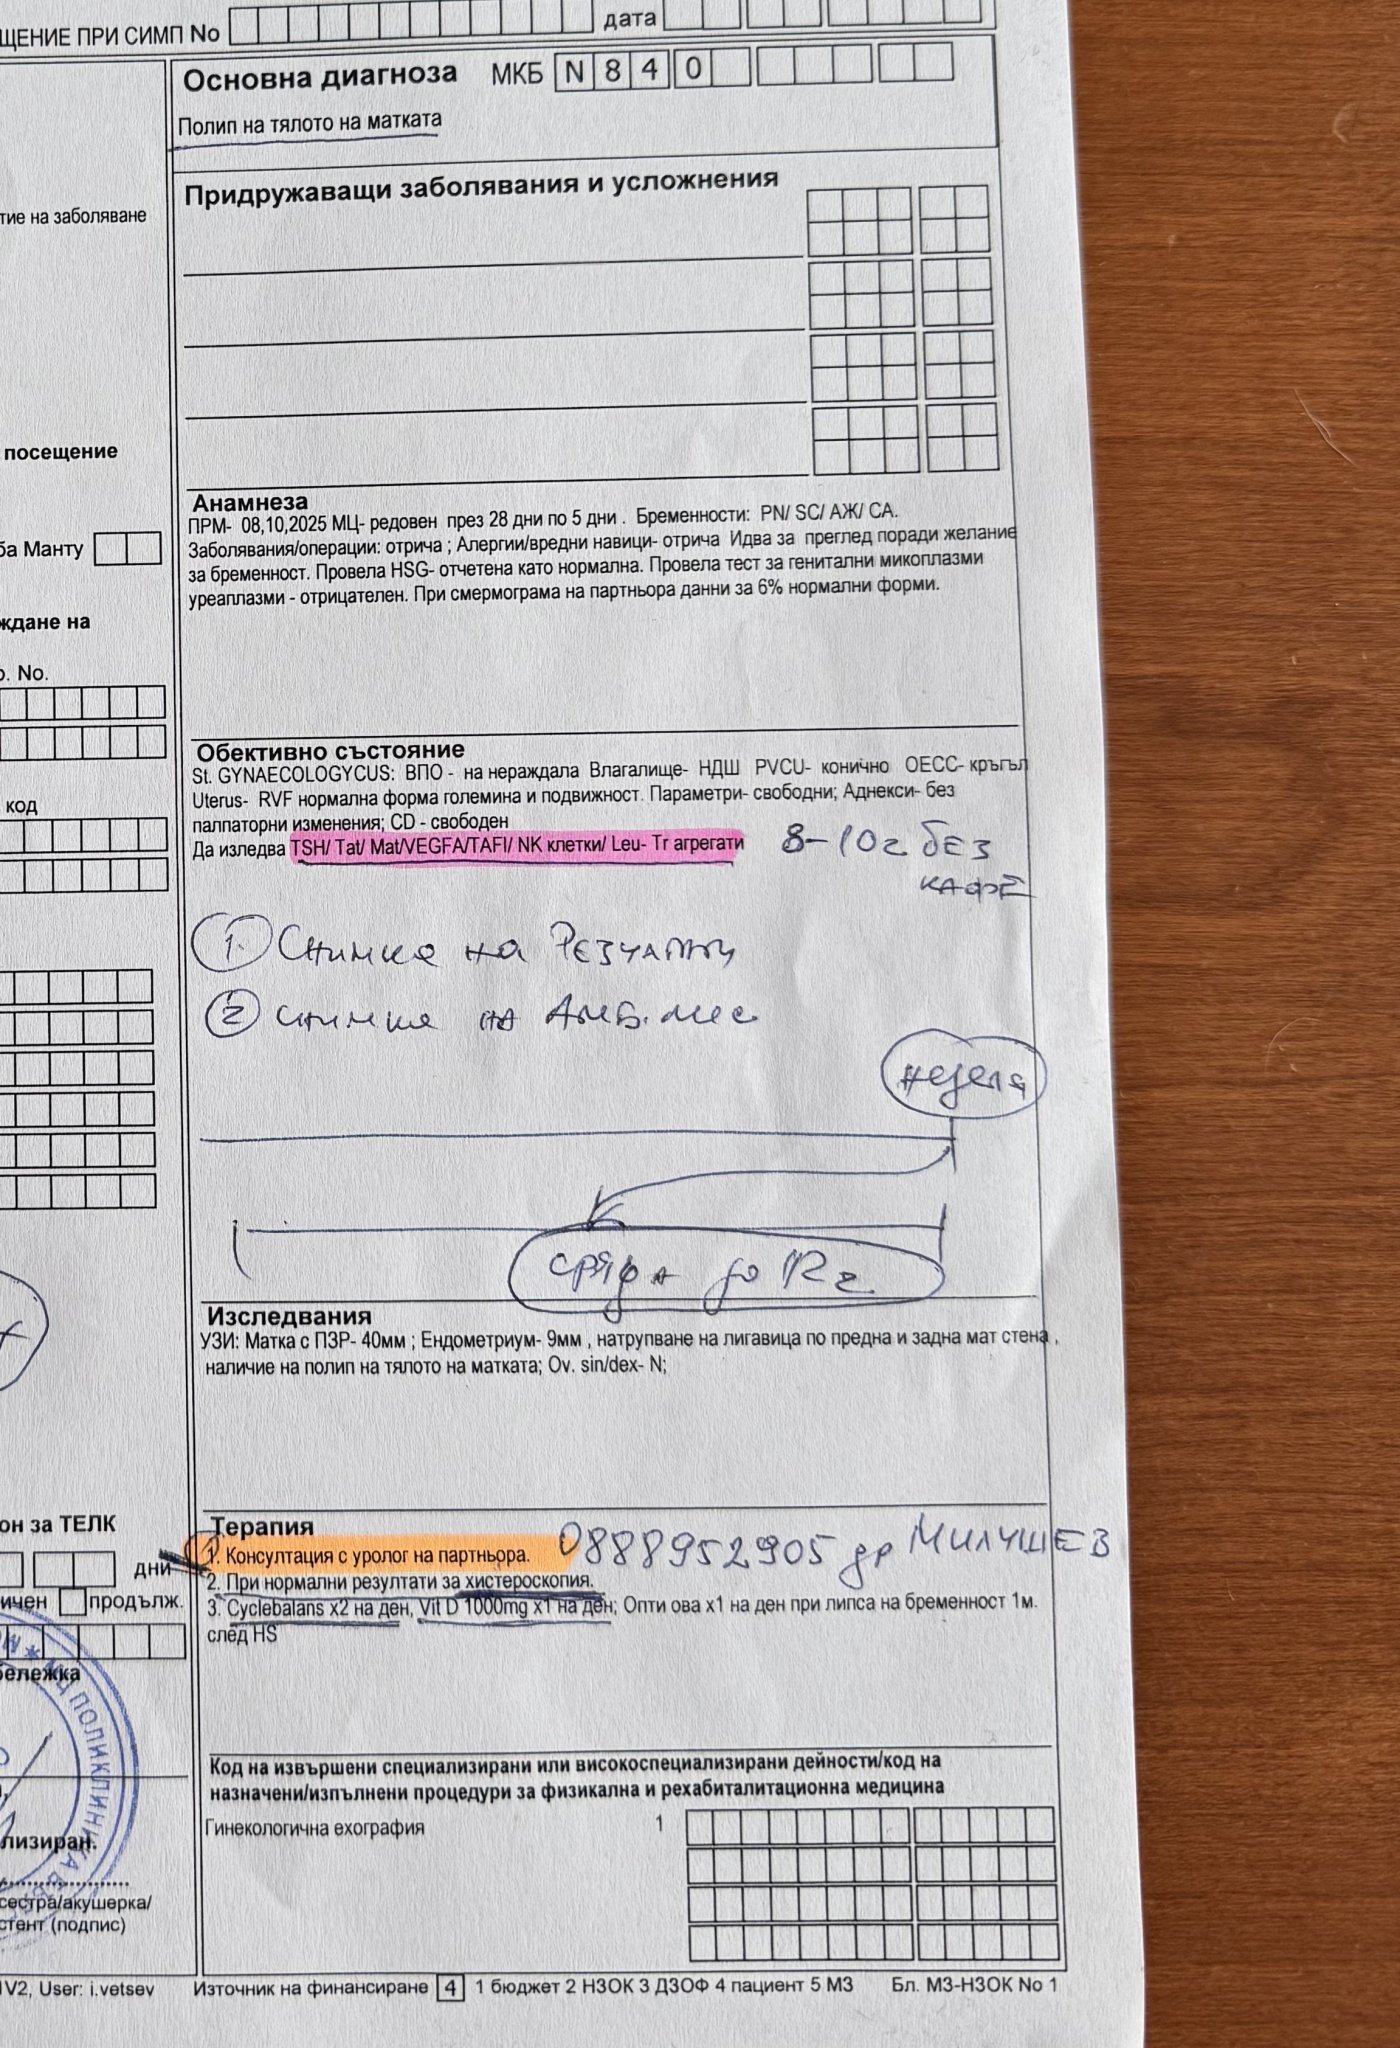 ЩЕНИЕ ПРИ СИМП No дата
Основна диагноза МКБ N 8 4 0
Полип на тялото на матката
Придружаващи заболявания и усложнения
тие на заболяване
посещение
ба Манту
ждане на
р. No.
код
Анамнеза
ПРМ- 08,10,2025 МЦ- редовен през 28 дни по 5 дни . Бременности: PN/ SC/ АЖ/ СА.
Заболявания/операции: отрича ; Алергии/вредни навици- отрича Идва за преглед поради желание
за бременност. Провела HSG- отчетена като нормална. Провела тест за генитални микоплазми
уреаплазми - отрицателен. При смермограма на партньора данни за 6% нормални форми.
Обективно състояние
St. GYNAECOLOGYCUS: ВПО - на нераждала Влагалище- НДШ PVCU- конично ОЕСС- кръгъл
Uterus- RVF нормална форма големина и подвижност. Параметри- свободни; Аднекси- без
палпаторни изменения; CD - свободен
Да изледва TSH/ Tat/ Mat/VEGFA/TAFI/ NK клетки/ Leu- Tr агрегати 8-10г. БЕЗ
КАФЕ
1. Снимка на
2 снимка на
неделя
сряда до 12 ч
Изследвания
УЗИ: Матка с ПЗР- 40мм ; Ендометриум- 9мм , натрупване на лигавица по предна и задна мат стена ,
наличие на полип на тялото на матката; Ov. sin/dex- N;
он за ТЕЛК
дни
ичен продълж.
бележка
Терапия
1. Консултация с уролог на партньора. 0888952905 др МИЛУШЕВ
2. При нормални резултати за хистероскопия.
3. Cyclebalans x2 на ден, Vit D 1000mg x1 на ден; Опти ова x1 на ден при липса на бременност 1м.
след HS
МЦ ПОЛИКЛИНИКА
Код на извършени специализирани или високоспециализирани дейности/код на
назначени/изпълнени процедури за физикална и рехабиталитационна медицина
Гинекологична ехография 1
лизиран.
сестра/акушерка/
стент (подпис)
V2, User: i.vetsev Източник на финансиране 4 1 бюджет 2 НЗОК 3 ДЗОФ 4 пациент 5 МЗ Бл. МЗ-НЗОК No 1